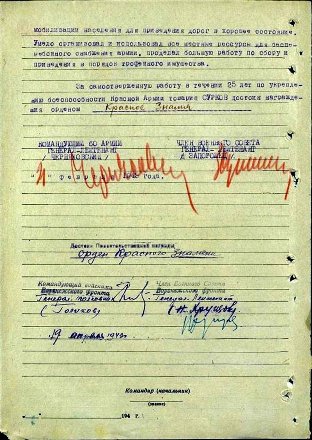 мобилизации населения для приведения дорог в хорошее состояние.
Умело организовал и использовал все местные ресурсы для беспе-
ребойного снабжения армии, проделал большую работу по сбору и
приведению в порядок трофейного имущества.
За самоотверженную работу в течении 25 лет по укрепле-
нию боеспособности Красной Армии товарищ СУРКОВ достоин награжде-
ния орденом Красное Знамя
КОМАНДУЮЩИЙ 60 АРМИИ ЧЛЕН ВОЕННОГО СОВЕТА
ГЕНЕРАЛ-ЛЕЙТЕНАНТ ГЕНЕРАЛ-ЛЕЙТЕНАНТ
/ЧЕРНЯХОВСКИЙ/ /ЗАПОРОЖЕЦ/
Февраля 1943 года.
Достоин Правительственной награды
Орден Красного Знамени
Командующий войсками Член Военного Совета
Воронежского фронта Воронежского фронта
Генерал-полковник Генерал-Лейтенант
(Голиков) (Н. Хрущев)
19 апреля 1943г.
Командир (начальник)
194 г.